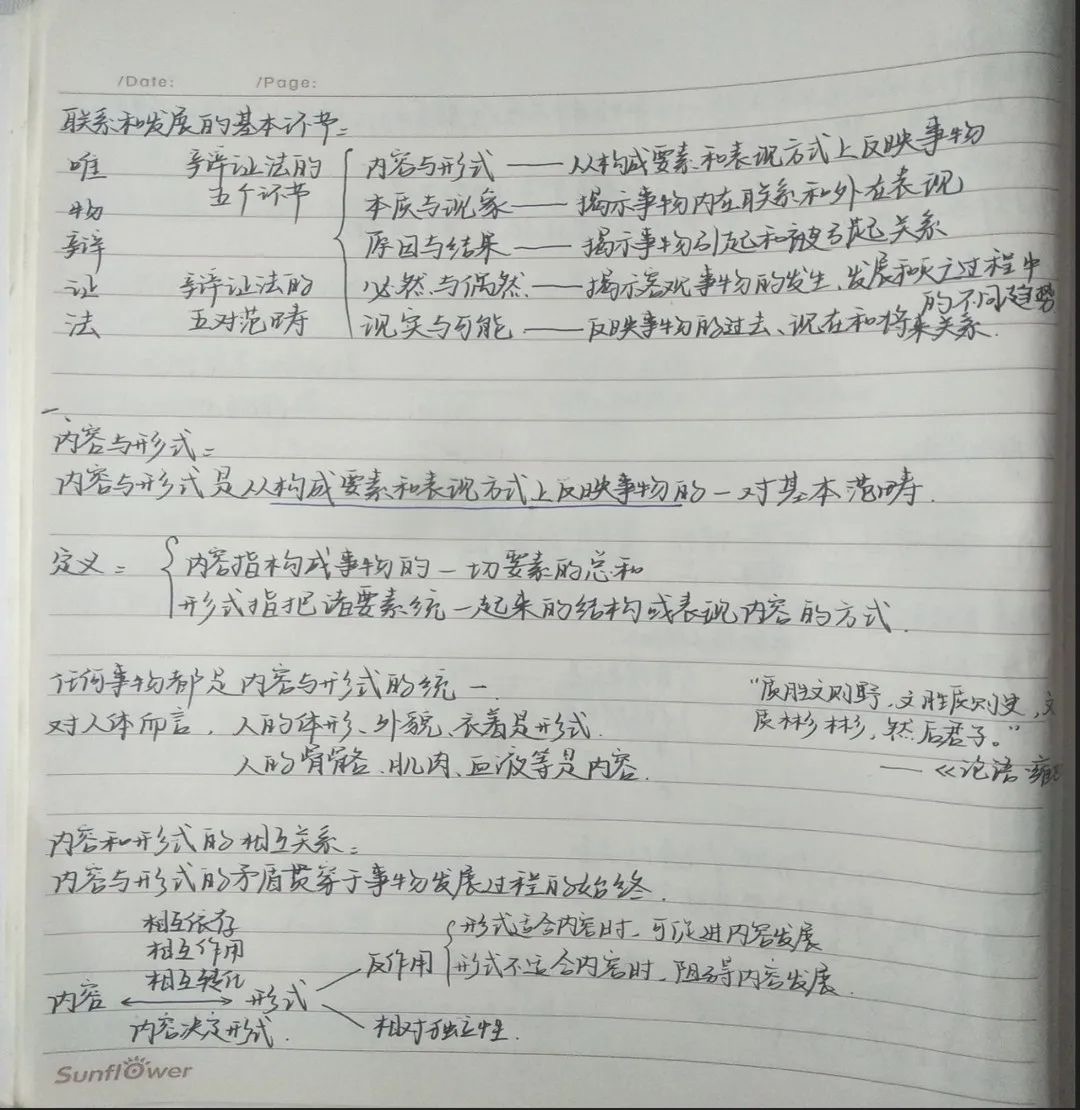 /Date: /Page:
联系和发展的基本环节：
唯 辩证法的 内容与形式 —— 从构成要素和表现方式上反映事物
五个环节
物 本质与现象 —— 揭示事物内在联系和外在表现
辩 原因与结果 —— 揭示事物引起和被引起关系
证 辩证法的 必然与偶然 —— 揭示客观事物的发生、发展和灭亡过程中
的不同趋势
法 五对范畴 现实与可能 —— 反映事物的过去、现在和将来关系.
一、
内容与形式：
内容与形式是从构成要素和表现方式上反映事物的一对基本范畴.
定义： 内容指构成事物的一切要素的总和
形式指把诸要素统一起来的结构或表现内容的方式.
任何事物都是内容与形式的统一.
对人体而言，人的体形、外貌、衣着是形式.
人的骨骼、肌肉、血液等是内容.
“质胜文则野，文胜质则史，文
质彬彬，然后君子。”
——《论语·雍
内容和形式的相互关系：
内容与形式的矛盾贯穿于事物发展过程的始终.
相互依存
相互作用
相互转化
内容 形式
内容决定形式.
反作用
形式适合内容时，可促进内容发展
形式不适合内容时，阻碍内容发展.
相对独立性.
Sunflower